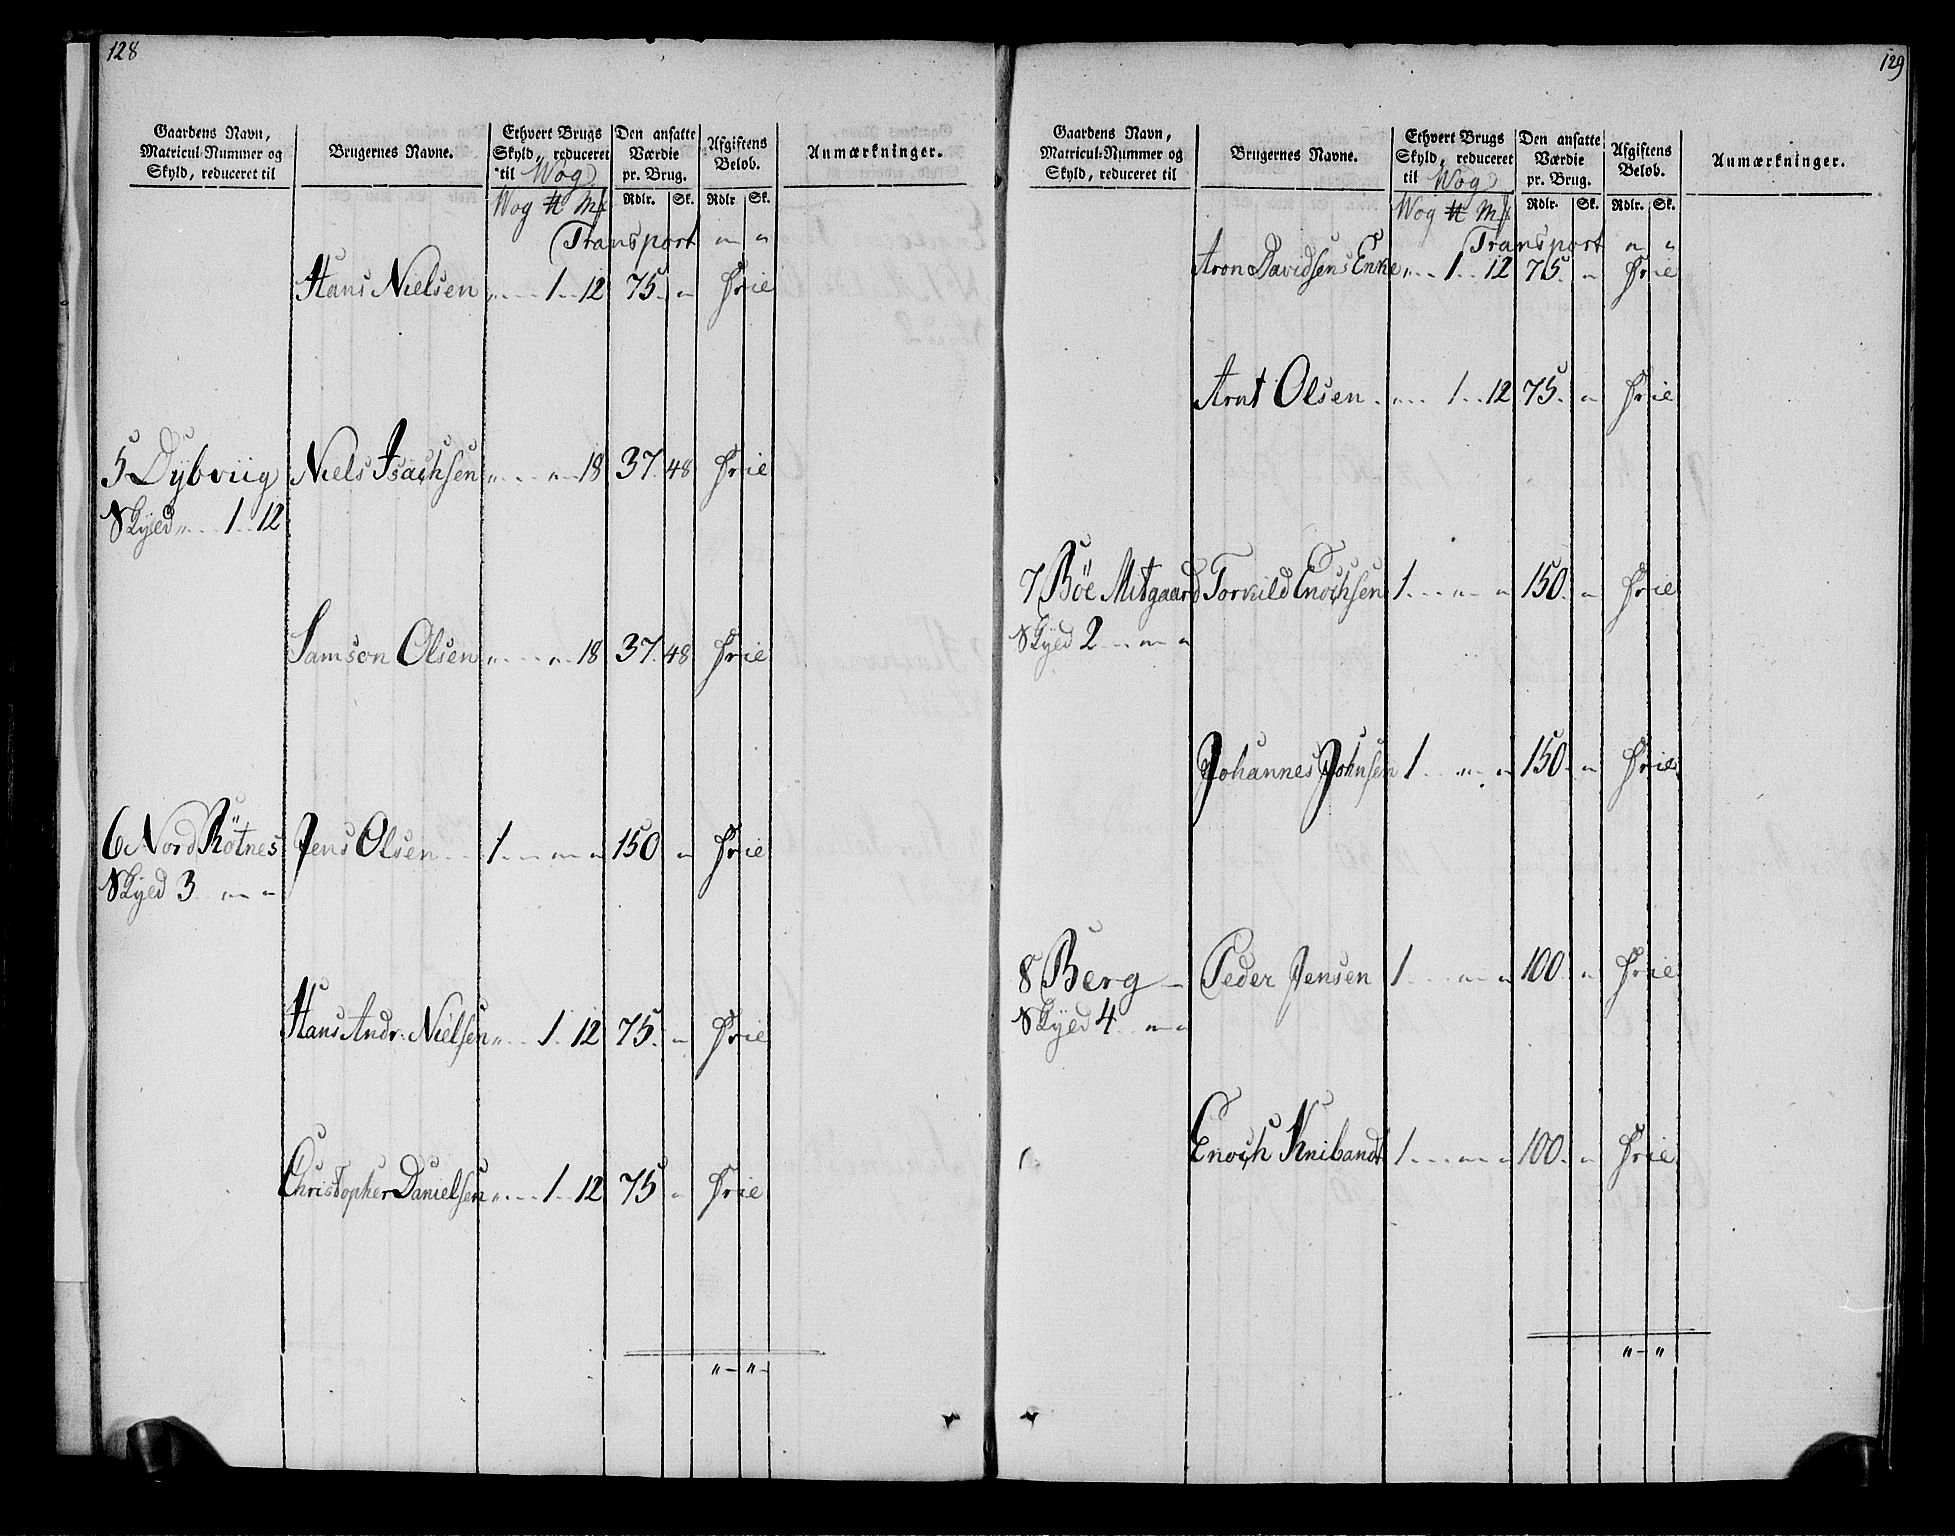 128
Gaardens Navn, Matricul-Nummer og Skyld, reduceret til | Brugernes Navne. | Ethvert Brugs Skyld, reduceret til Wog | Den ansatte Værdie pr. Brug. | Afgiftens Beløb. | Anmærkninger.
Wog ℔ Mk | Rdlr. Sk. | Rdlr. Sk.
Transport " "
Hans Nielsen " 1 12 75 " Frie
5 Dybviig Niels Isachsen " " 18 37 48 Frie
Skyld " 1 12
Samson Olsen " " 18 37 48 Frie
6 Nord Rötnes Jens Olsen 1 " " 150 " Frie
Skyld 3 " "
Hans Andr: Nielsen " 1 12 75 " Frie
Christopher Danielsen " 1 12 75 " Frie
" "
129
Gaardens Navn, Matricul-Nummer og Skyld, reduceret til | Brugernes Navne. | Ethvert Brugs Skyld, reduceret til Wog | Den ansatte Værdie pr. Brug. | Afgiftens Beløb. | Anmærkninger.
Wog ℔ Mk | Rdlr. Sk. | Rdlr. Sk.
Transport " "
Aron Davidsens Enke " 1 12 75 " Frie
Arnt Olsen " 1 12 75 " Frie
7 Böe Mitgaard Torkild Enochsen 1 " " 150 " Frie
Skyld 2 " "
Johannes Johnsen 1 " " 150 " Frie
8 Berg Peder Jensen 1 " " 100 " Frie
Skyld 4 " "
Enoch Knibandt 1 " " 100 " Frie
" "